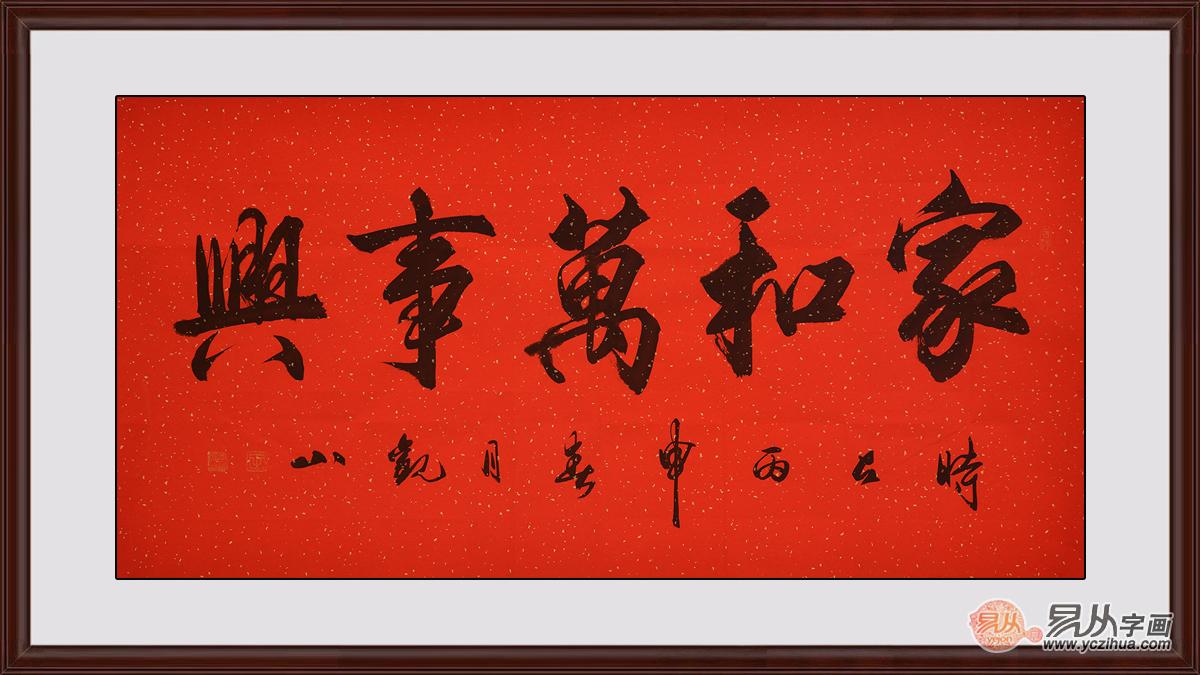 家和萬事興
時在丙申春月觀山
易从
易从字画
www.yczihua.com